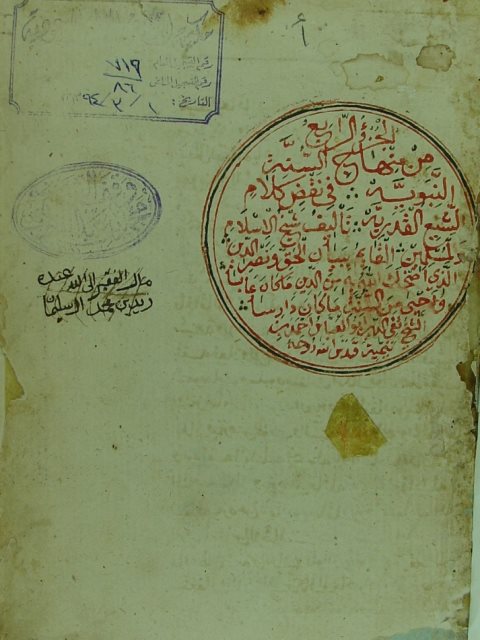 أ
رقم التسجيل العام ٧١٩
رقم التسجيل الخاص ٨٦
التاريخ: ١ / ٣ / ٩٤
الجزؤ الرابع
من منهاج السنة
النبوية في نقض كلام
الشيع القدرية تأليف شيخ الاسلام
والمسلمين القائم ببيان الحق ونصر الدين
الذي الله به من الدين ماكان
واحيى من السنن ماكان دارسا
الشيخ تقي الدين ابو العباس احمد بن
تيمية قدس الله روحه
مالك الفقير الى الله عبده
محمد السليمان